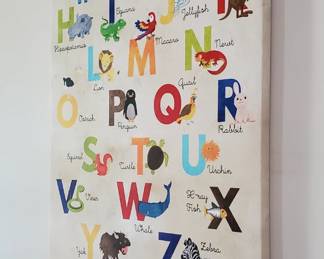 H I J
Hippopotamus Iguana Jellyfish
Macaw
L M N
Lion Newt
O P Q R
Ostrich Penguin Quail Rabbit
S T U
Squirrel Turtle Urchin
V W X
Viper Whale X-ray Fish
Y Z
Yak Zebra